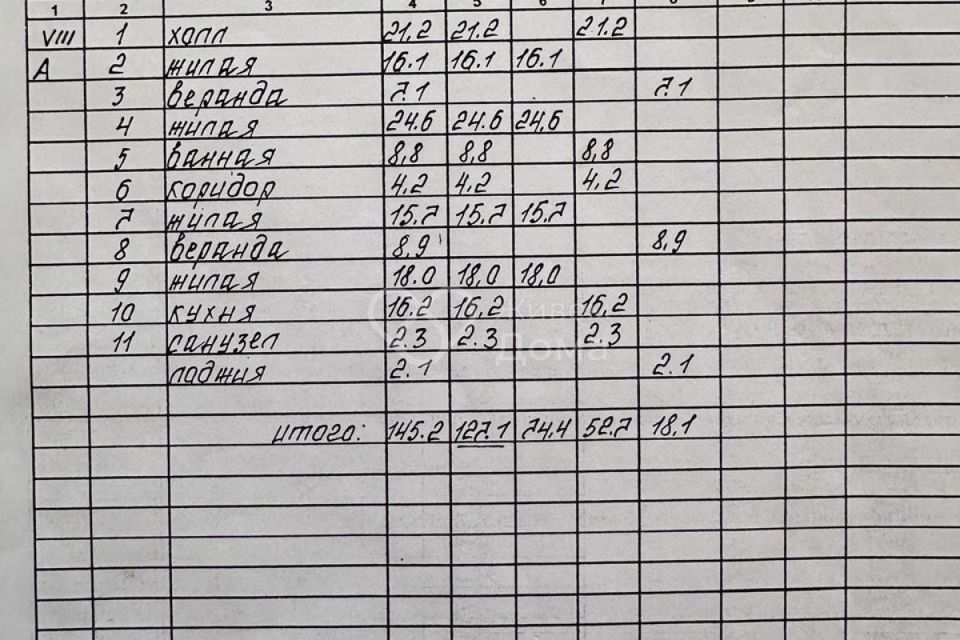 1 2 3 4 5 6 7 8
VIII 1 холл 21,2 21.2 21.2
А 2 жилая 16.1 16.1 16.1
3 веранда 7.1 7.1
4 жилая 24.6 24.6 24,6
5 ванная 8,8 8,8 8,8
6 коридор 4.2 4.2 4.2
7 жилая 15.7 15.7 15.7
8 веранда 8,9 8,9
9 жилая 18.0 18,0 18,0
10 кухня 16.2 16,2 16,2
11 санузел 2.3 2.3 2.3
лоджия 2.1 2.1
итого: 145.2 127.1 74.4 52.7 18,1
Дома